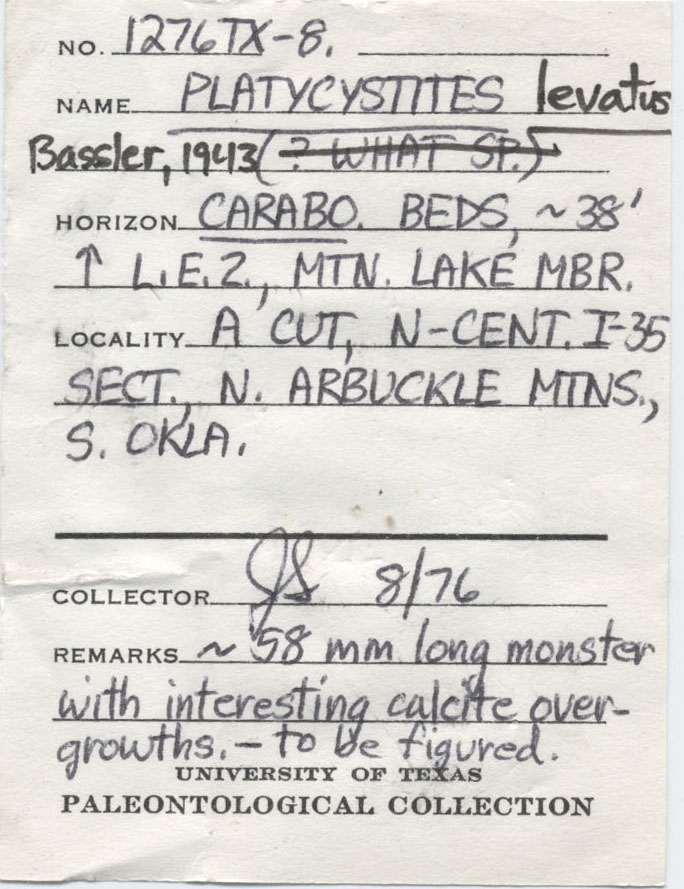 NO. 1276TX-8.
NAME PLATYCYSTITES levatus
Bassler, 1943 (? WHAT SP.)
HORIZON CARABO. BEDS, ~38'
↑ L.E.Z., MTN. LAKE MBR.
LOCALITY A CUT, N-CENT. I-35
SECT., N. ARBUCKLE MTNS.,
S. OKLA.
COLLECTOR JS 8/76
REMARKS ~ 58 mm long monster
with interesting calcite over-
growths. - to be figured.
UNIVERSITY OF TEXAS
PALEONTOLOGICAL COLLECTION